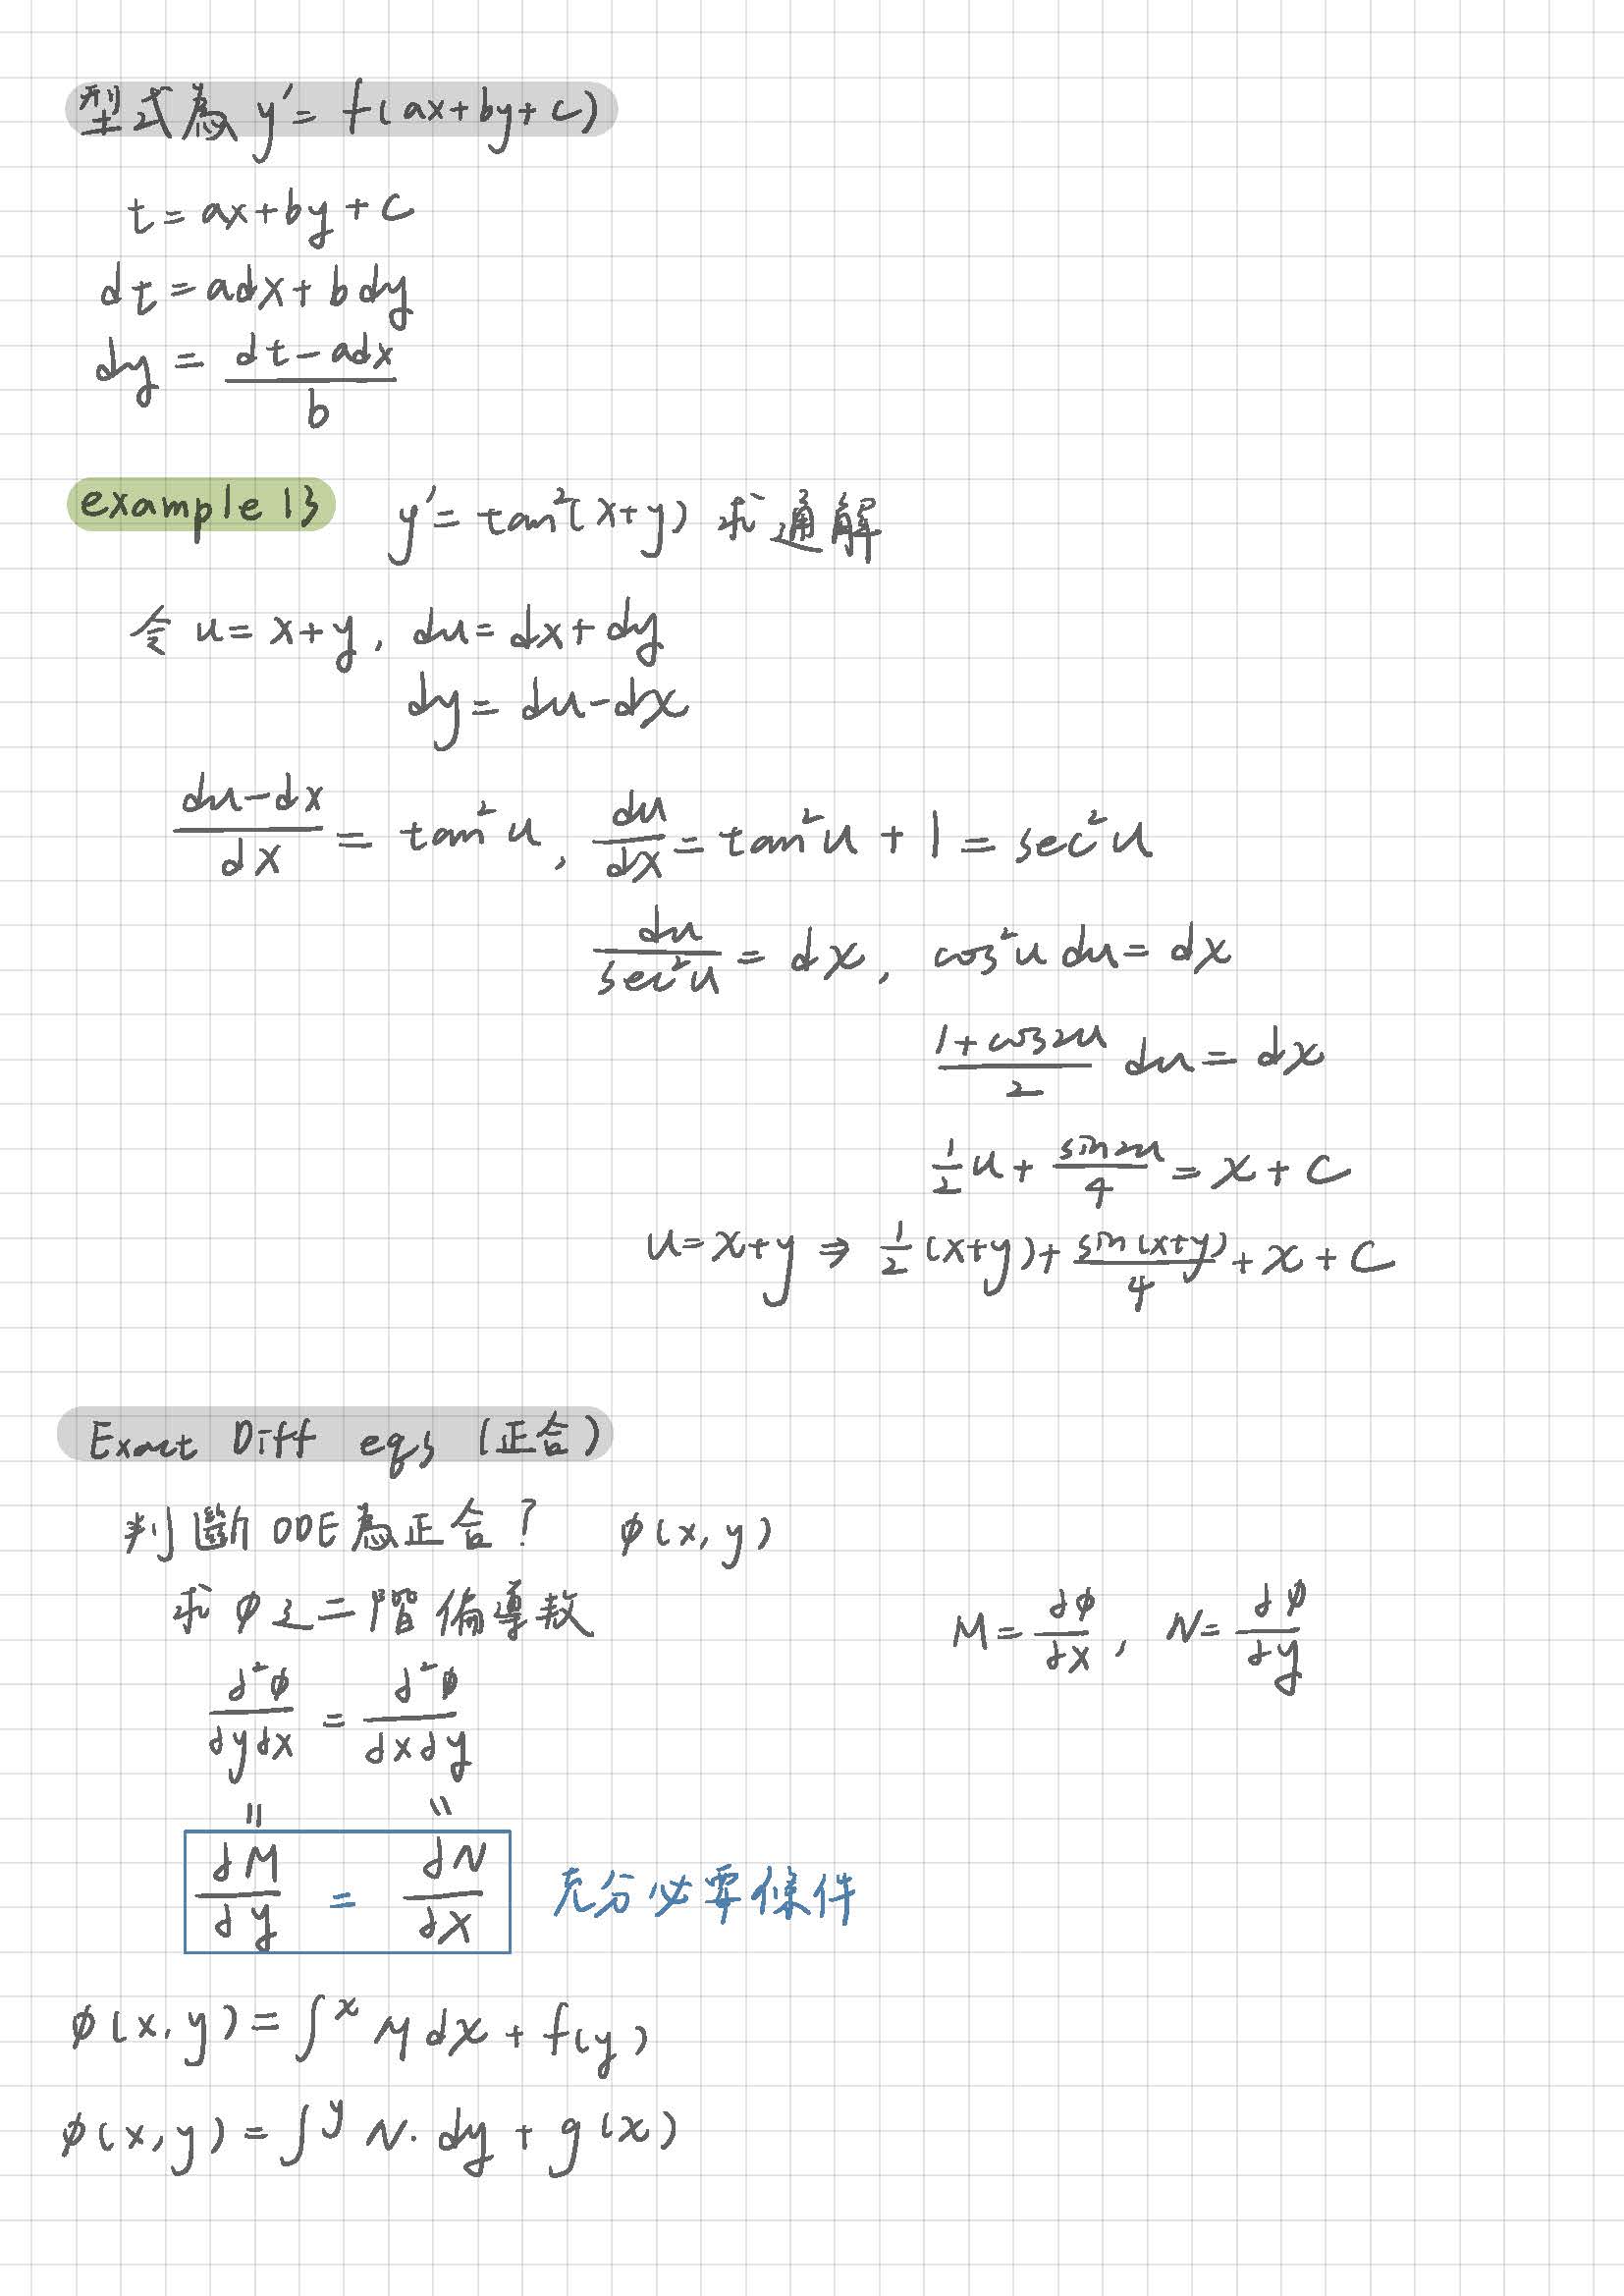 型式為 y' = f(ax+by+c)
t = ax+by+c
dt = adx + bdy
dy = (dt - adx)/b
example 13 y' = tan²(x+y) 求通解
令 u = x+y, du = dx+dy
dy = du-dx
(du-dx)/dx = tan²u, du/dx = tan²u + 1 = sec²u
du/sec²u = dx, cos²u du = dx
(1+cos2u)/2 du = dx
1/2 u + sin2u/4 = x + C
u = x+y ⇒ 1/2 (x+y) + sin(x+y)/4 + x + C
Exact Diff eqs (正合)
判斷 ODE 為正合? φ(x, y)
求 φ 之二階偏導數
M = ∂φ/∂x, N = ∂φ/∂y
∂²φ/∂y∂x = ∂²φ/∂x∂y
=  =
∂M/∂y = ∂N/∂x 充分必要條件
φ(x, y) = ∫^x M dx + f(y)
φ(x, y) = ∫^y N · dy + g(x)